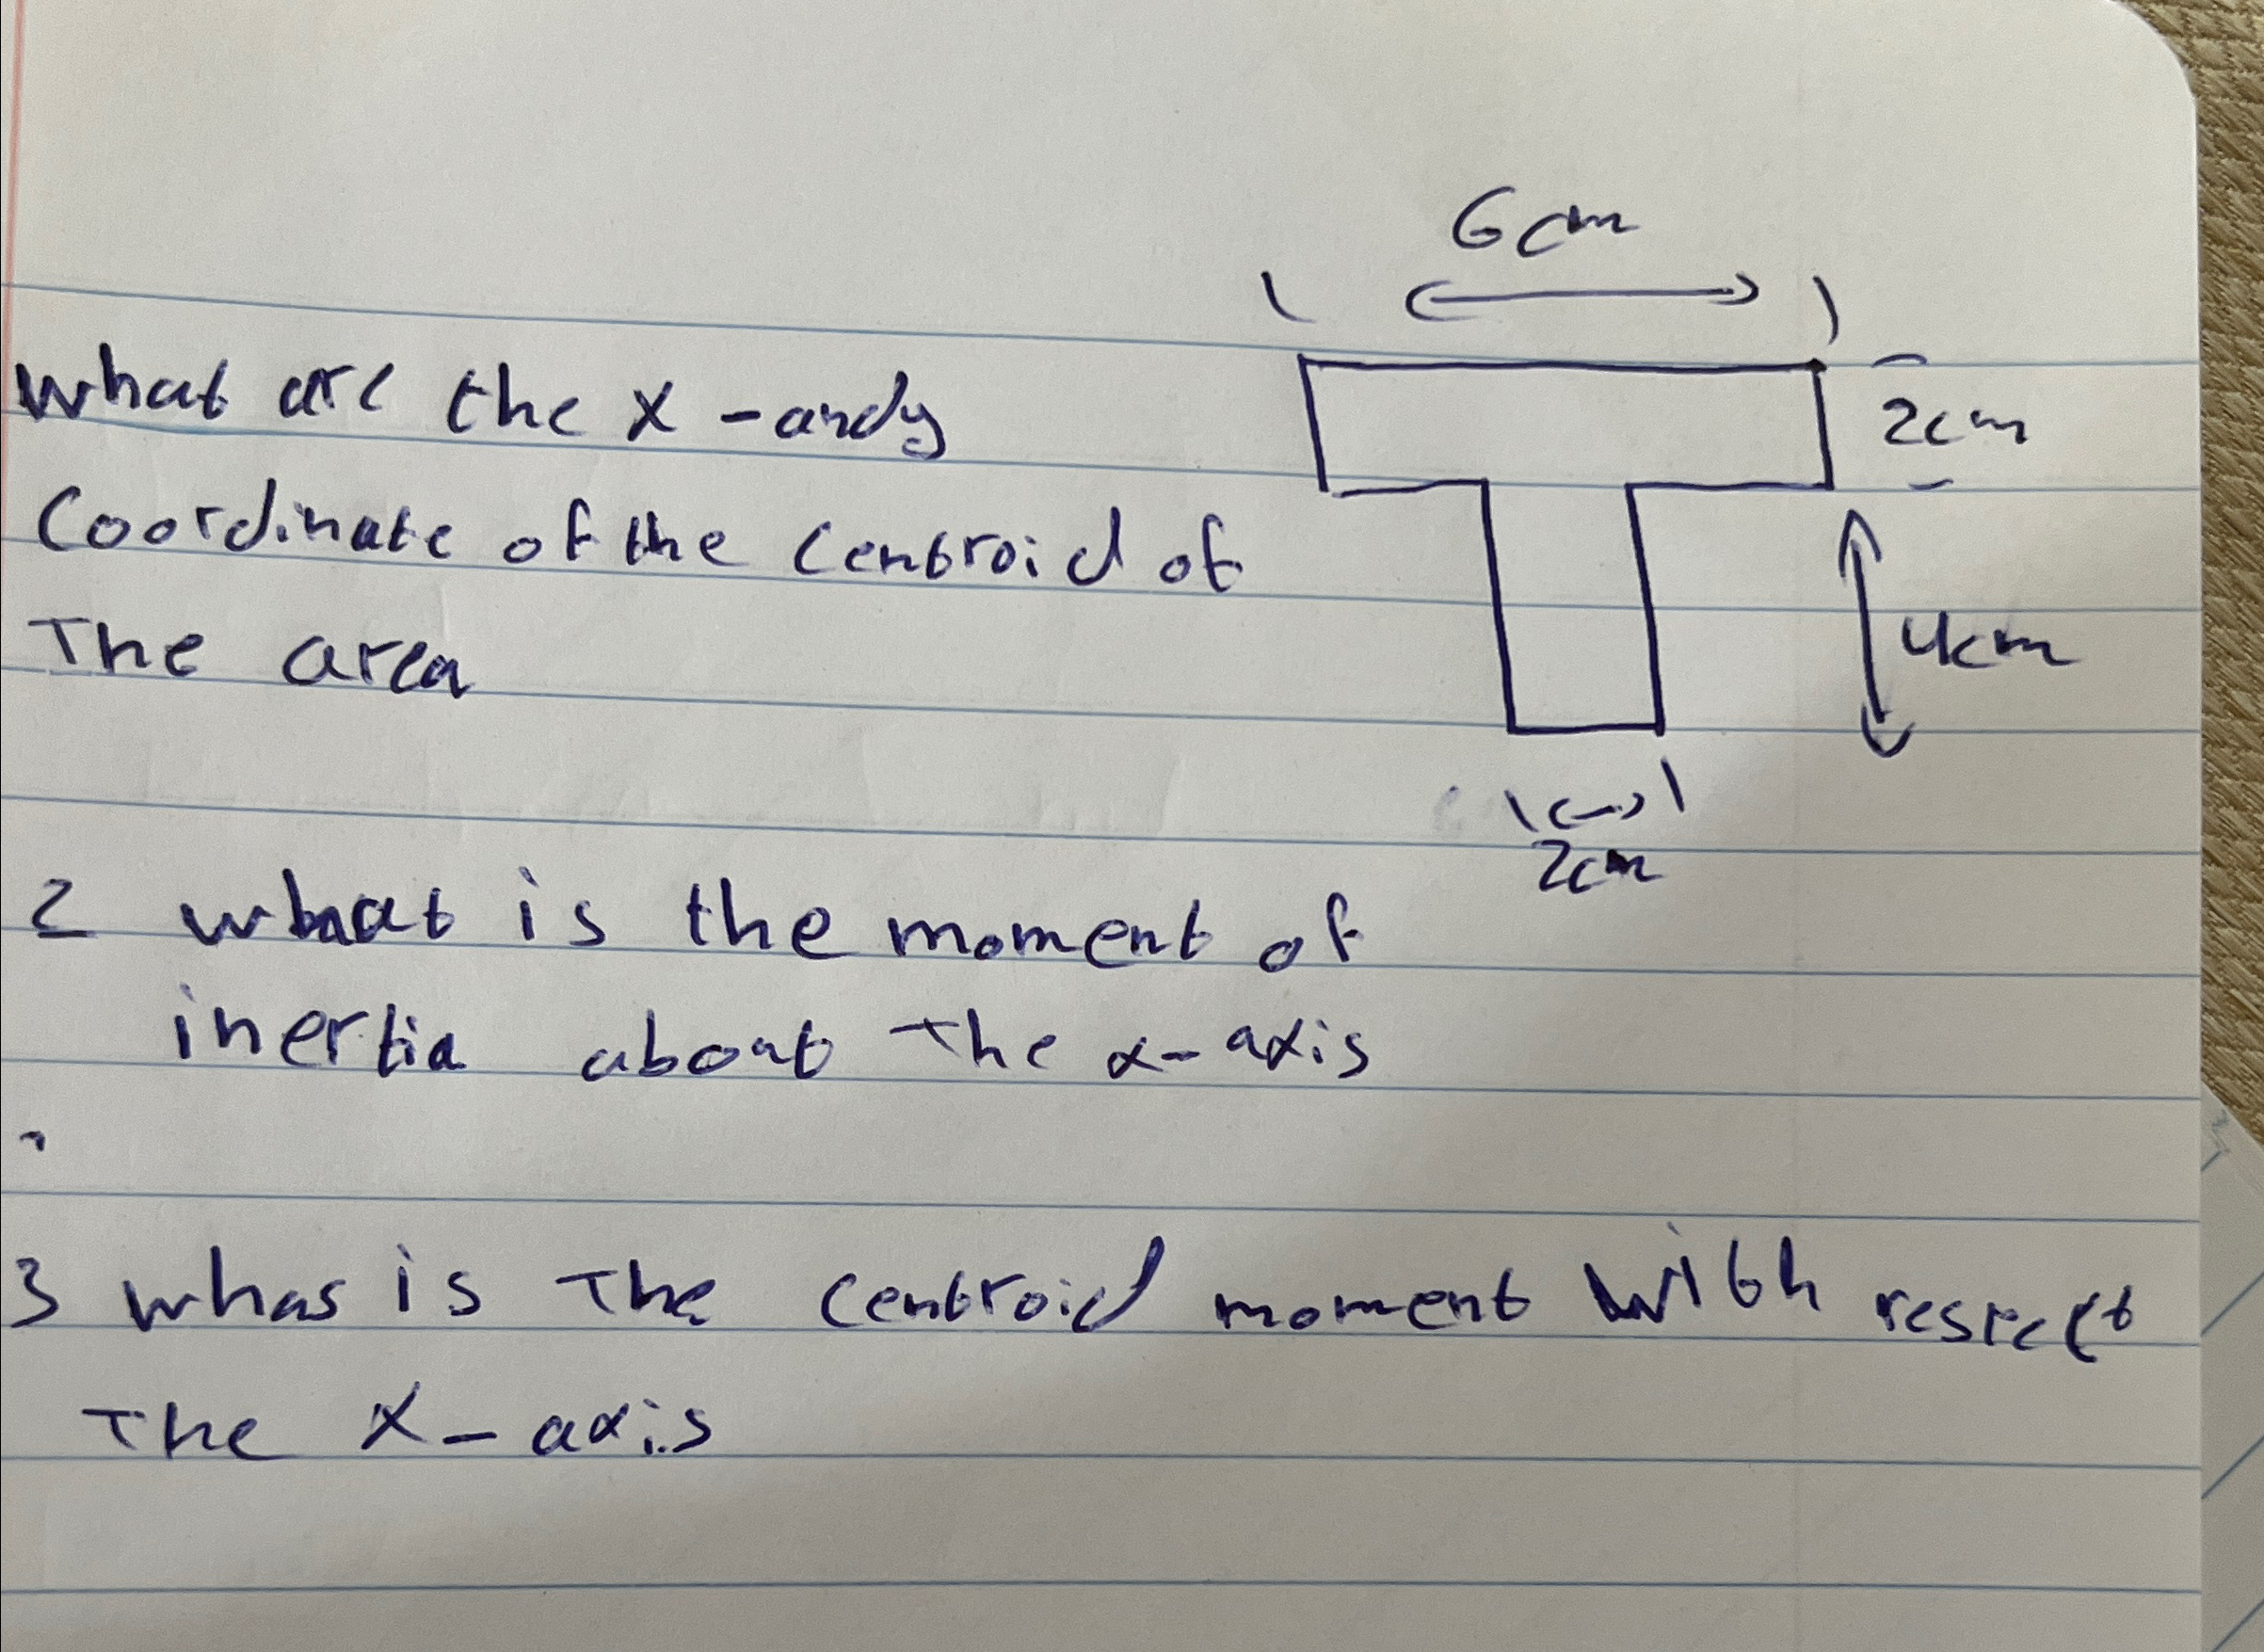 6cm
What are the x -andy
2cm
Coordinate of the Centroid of
4cm
The area
2cm
2 what is the moment of
inertia about The x-axis
3 whas is The Centroid moment With respect
The X-axis